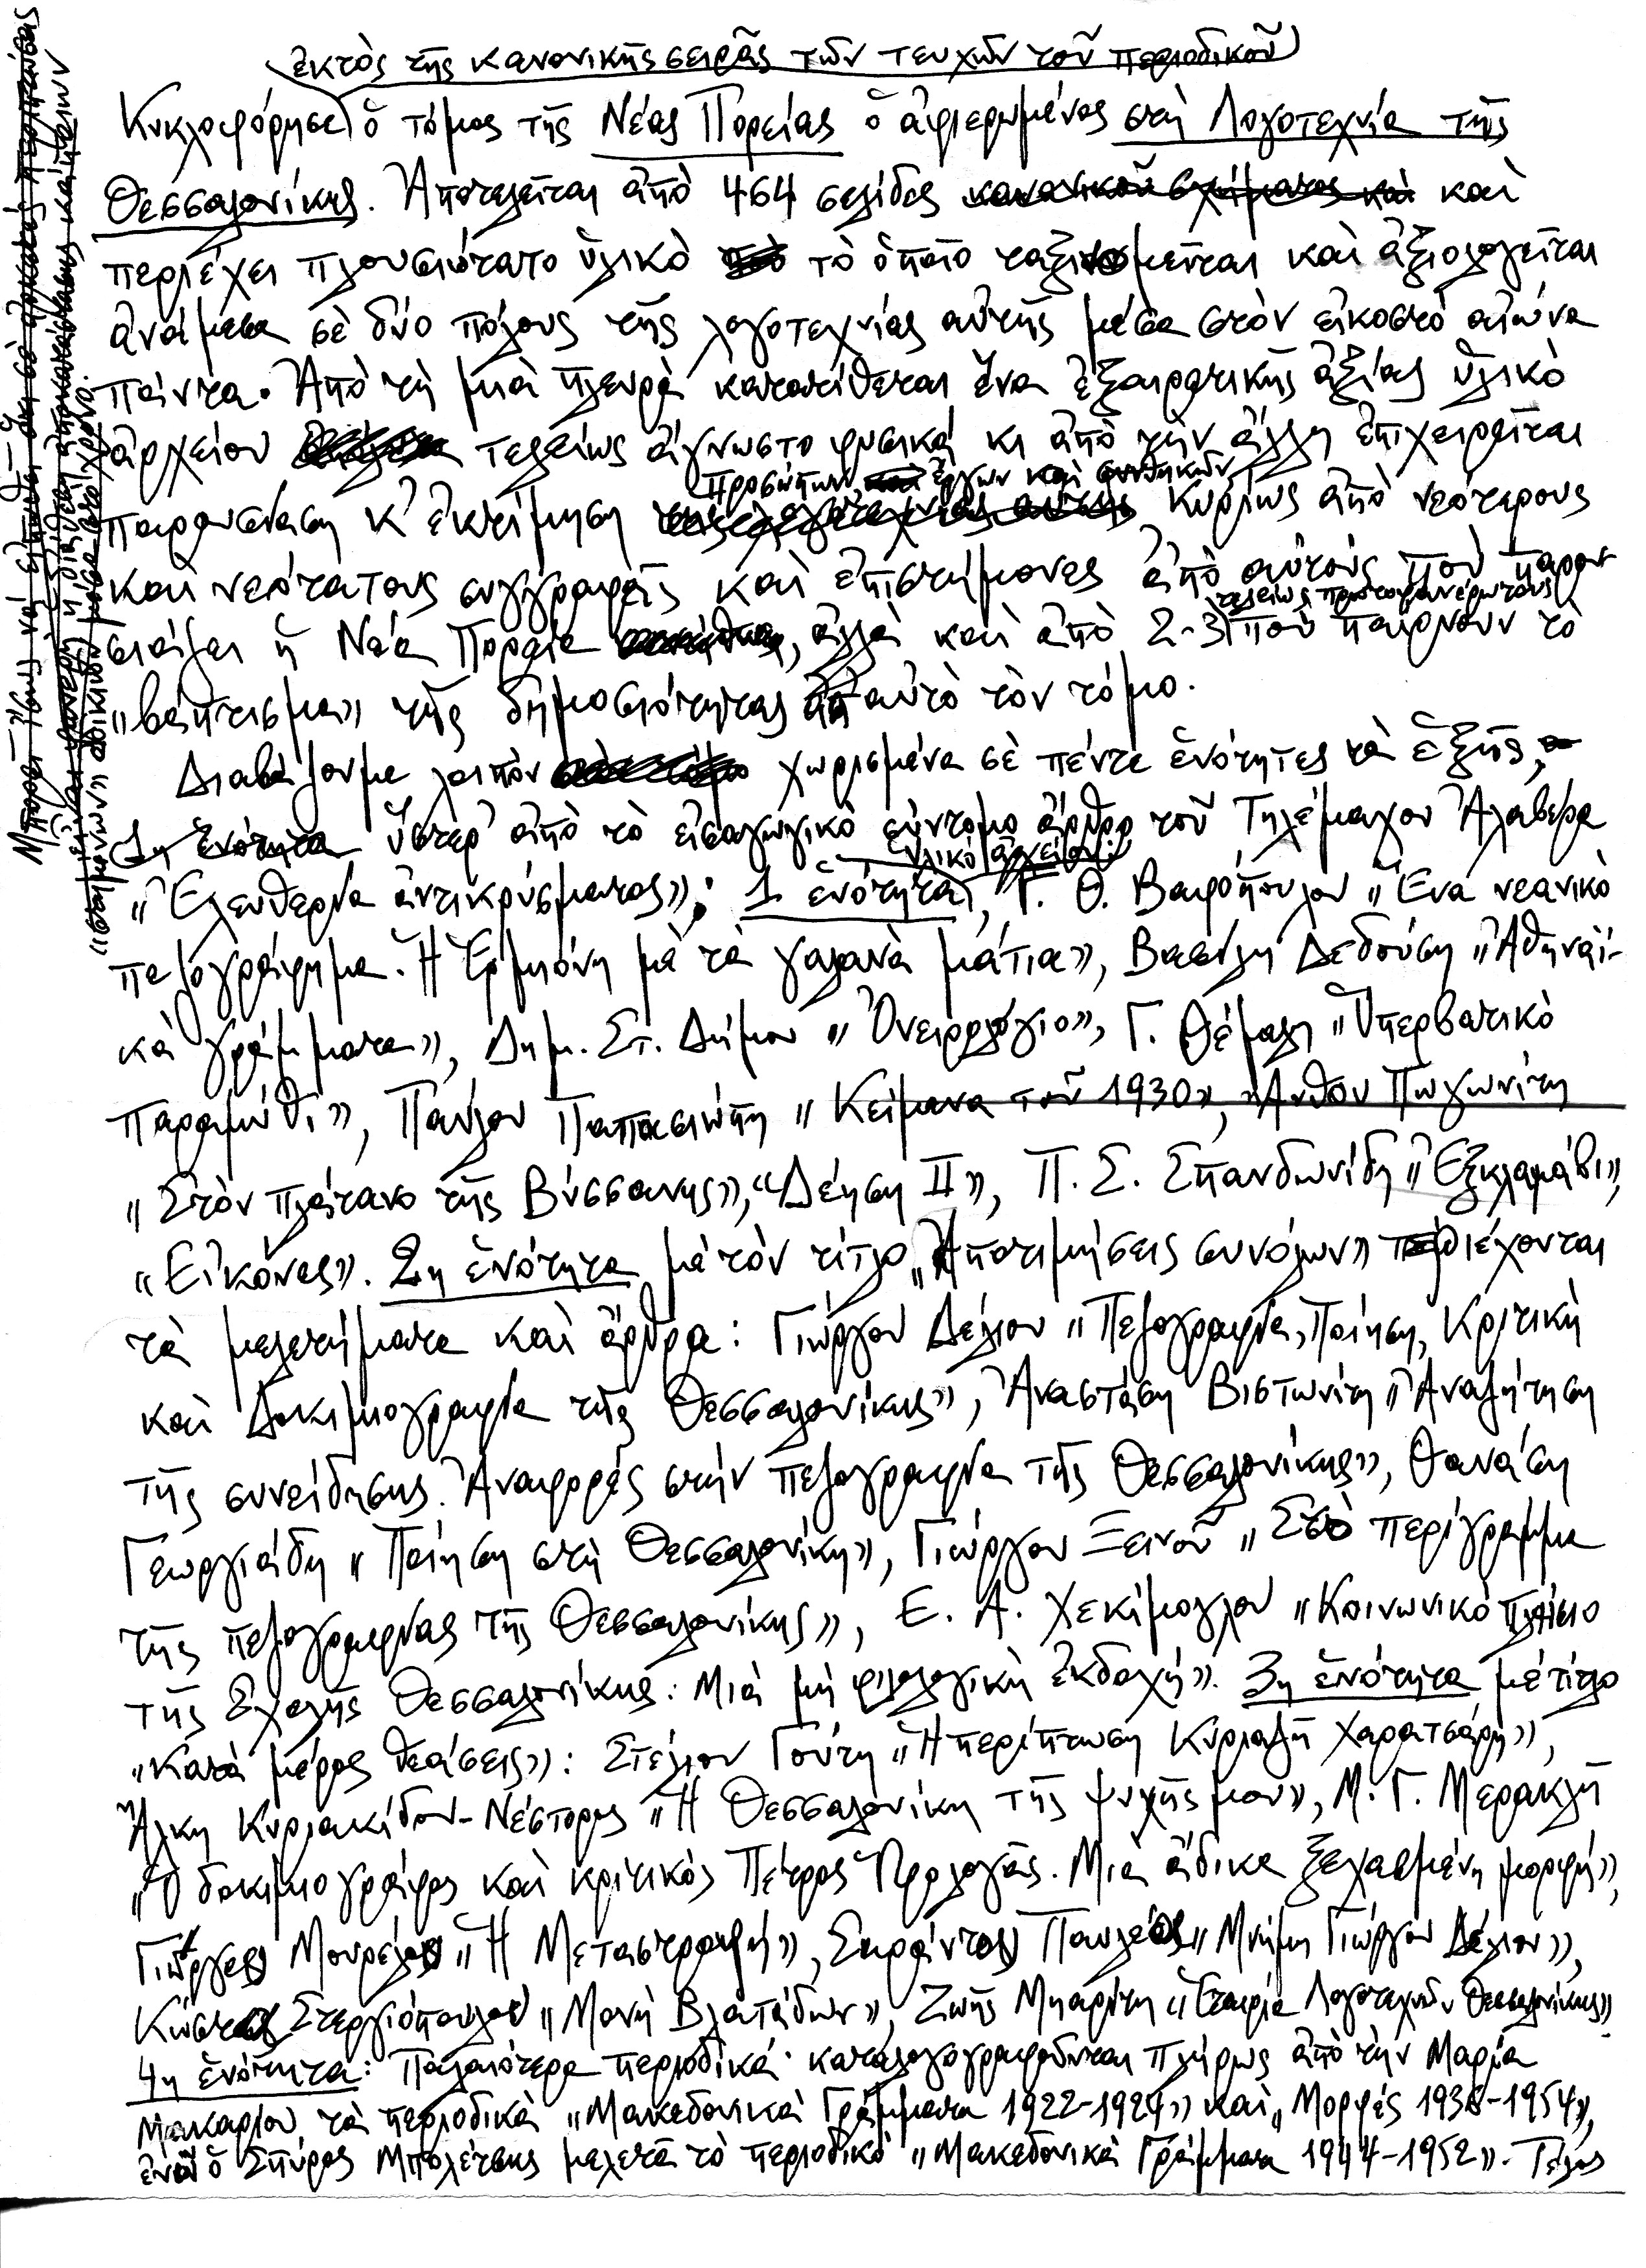 ἐκτὸς τῆς κανονικῆς σειρᾶς τῶν τευχῶν τοῦ περιοδικοῦ
Κυκλοφόρησε ὁ τόμος τῆς Νέας Πορείας ὁ ἀφιερωμένος στὴ Λογοτεχνία τῆς
Θεσσαλονίκης. Ἀποτελεῖται ἀπὸ 464 σελίδες κανονικοῦ σχήματος καὶ καὶ
περιέχει πλουσιώτατο ὑλικὸ τὸ ὁποῖο ταξινομεῖται καὶ ἀξιολογεῖται
ἀνάμεσα σὲ δύο πόλους τῆς λογοτεχνίας αὐτῆς μέσα στὸν εἰκοστὸ αἰώνα
πάντα. Ἀπὸ τὴ μιὰ πλευρὰ κατατίθεται ἕνα ἐξαιρετικῆς ἀξίας ὑλικὸ
ἀρχείου τελείως ἄγνωστο φυσικά κι ἀπὸ τὴν ἄλλη ἐπιχειρεῖται
προσώπων καὶ ἔργων καὶ συνθηκῶν
παρουσίαση κ' ἐκτίμηση τῆς λογοτεχνίας αὐτῆς κυρίως ἀπὸ νεότερους
καὶ νεότατους συγγραφεῖς καὶ ἐπιστήμονες ἀπὸ αὐτοὺς ποὺ παρου-
τελείως πρωτοφανέρωτους
σιάζει ἡ Νέα Πορεία, ἀλλὰ καὶ ἀπὸ 2-3 ποὺ παίρνουν τὸ
«βάπτισμα» τῆς δημοσιότητας ἀπ' αὐτὸ τὸν τόμο.
Διαβάζουμε λοιπὸν χωρισμένα σὲ πέντε ἑνότητες τὰ ἑξῆς,
1η ἑνότητα ὕστερ' ἀπὸ τὸ εἰσαγωγικὸ σύντομο ἄρθρο τοῦ Τηλέμαχου Ἀλαβέρα
ὑλικὸ ἀρχείου:
«Ἐλευθερία ἀντικρύσματος»: 1 ἑνότητα, Γ. Θ. Βαφόπουλου «Ἕνα νεανικὸ
πεζογράφημα. Ἡ Ἑρμιόνη μὲ τὰ γαλανὰ μάτια», Βασίλη Δεδούση «Ἀθηναϊ-
κὰ γράμματα», Δημ. Στ. Δήμου «Ὀνειρολόγιο», Γ. Θέμελη «Ὑπερβατικὸ
παραμύθι», Παύλου Παπασιώπη «Κείμενα τοῦ 1930», Ἄνθου Πωγωνίτη
«Στὸν πλάτανο τῆς Βύσσανης», «Δέηση ΙΙ», Π. Σ. Σπανδωνίδη «Ἐξκλαμάβι»,
«Εἰκόνες». 2η ἑνότητα μὲ τὸν τίτλο «Ἀποτιμήσεις συνόλων» περιέχονται
τὰ μελετήματα καὶ ἄρθρα: Γιώργου Δέλιου «Πεζογραφία, Ποίηση, Κριτικὴ
καὶ Δοκιμιογραφία τῆς Θεσσαλονίκης», Ἀναστάση Βιστωνίτη «Ἀναζήτηση
τῆς συνείδησης. Ἀναφορὲς στὴν πεζογραφία τῆς Θεσσαλονίκης», Θανάση
Γεωργιάδη «Ποίηση στὴ Θεσσαλονίκη», Γιώργου Ξεινοῦ «Στὸ περίγραμμα
τῆς πεζογραφίας τῆς Θεσσαλονίκης», Ε. Α. Χεκίμογλου «Κοινωνικὸ πλαίσιο
τῆς Σχολῆς Θεσσαλονίκης. Μιὰ μὴ φιλολογικὴ ἐκδοχή». 3η ἑνότητα μὲ τίτλο
«Κατὰ μέρος θεάσεις»: Στέλιου Γούτη «Ἡ περίπτωση Κυριαζῆ Χαρατσάρη»,
Ἄλκη Κυριακίδου-Νέστορος «Ἡ Θεσσαλονίκη τῆς ψυχῆς μου», Μ. Γ. Μερακλῆ
«Ὁ δοκιμιογράφος καὶ κριτικὸς Πέτρος Ὡρολογᾶς. Μιὰ ἄδικα ξεχασμένη μορφή»,
Γιώργου Μουρέλου «Ἡ Μεταστροφή», Σαράντου Παυλέα «Μνήμη Γιώργου Δέλιου»,
Κώστα Στεργιόπουλου «Μονὴ Βλατάδων», Ζωῆς Μπαρίτη «Ἑταιρία Λογοτεχνῶν Θεσσαλονίκης».
4η ἑνότητα: Παλαιότερα περιοδικά· καταλογογραφοῦνται πλήρως ἀπὸ τὴν Μαρία
Μακαρίου τὰ περιοδικὰ «Μακεδονικὰ Γράμματα 1922-1924» καὶ «Μορφές 1938-1954»,
ἐνῶ ὁ Σπύρος Μπολέτσης μελετᾶ τὸ περιοδικὸ «Μακεδονικὰ Γράμματα 1944-1952». Τέλος
Μπορεῖ ἴσως νὰ εἰπωθεῖ ὅτι σὲ ἀρκετὲς περιπτώσεις
εἶναι φανερὴ ἡ διάθεση ἀποκατάστασης καὶ